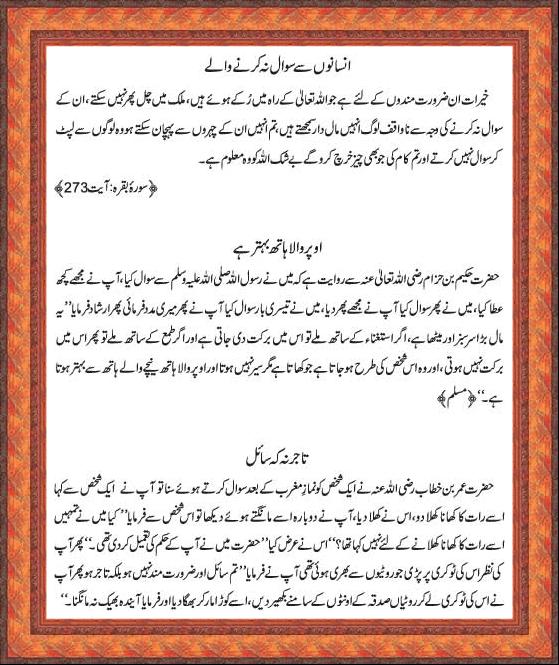 انسانوں سے سوال نہ کرنے والے
خیرات ان ضرورت مندوں کے لئے ہے جو اللہ تعالیٰ کے راہ میں رُکے ہوئے ہیں، ملک میں چل پھر نہیں سکتے، ان کے
سوال نہ کرنے کی وجہ سے ناواقف لوگ انہیں مال دار سمجھتے ہیں، تم انہیں ان کے چہروں سے پہچان سکتے ہو وہ لوگوں سے لپٹ
کر سوال نہیں کرتے اور تم کام کی چیز خرچ کرو گے بے شک اللہ کو وہ معلوم ہے۔
﴿سورۂ بقرہ: آیت273﴾
اوپر والا ہاتھ بہتر ہے
حضرت حکیم بن حزام رضی اللہ تعالیٰ عنہ سے روایت ہے کہ میں نے رسول اللہ صلی اللہ علیہ وسلم سے سوال کیا، آپ نے مجھے کچھ
عطا کیا، میں نے پھر سوال کیا آپ نے مجھے پھر دیا، میں نے تیسری بار سوال کیا آپ نے پھر میری مدد فرمائی پھر ارشاد فرمایا’’یہ
مال بڑا سر سبز اور میٹھا ہے، اگر استغناء کے ساتھ ملے تو اس میں برکت دی جاتی ہے اور اگر طمع کے ساتھ ملے تو پھر اس میں
برکت نہیں ہوتی، اور وہ اس شخص کی طرح ہو جاتا ہے جو کھاتا ہے مگر سیر نہیں ہوتا اور اوپر والا ہاتھ نیچے والے ہاتھ سے بہتر ہوتا
ہے۔‘‘﴿مسلم﴾
تاجر نہ کہ سائل
حضرت عمر بن خطاب رضی اللہ عنہ نے ایک شخص کو نماز مغرب کے بعد سوال کرتے ہوئے سنا تو آپ نے ایک شخص سے کہا
اسے رات کا کھانا کھلا دو، اس نے کھلا دیا، آپ نے دوبارہ اسے مانگتے ہوئے دیکھا تو اس شخص سے فرمایا’’کیا میں نے تمہیں
اسے رات کا کھانا کھلانے کے لئے نہیں کہا تھا؟‘‘ اس نے عرض کیا’’حضرت میں نے آپ کے حکم کی تعمیل کر دی تھی۔‘‘ پھر آپ
کی نظر اس کی ٹوکری پر پڑی جو روٹیوں سے بھری ہوئی تھی آپ نے فرمایا’’تم سائل اور ضرورت مند نہیں ہو بلکہ تاجر ہو پھر آپ
نے اس کی ٹوکری لے کر روٹیاں صدقہ کے اونٹوں کے سامنے بکھیر دیں، اسے کوڑا مار کر بھگا دیا اور فرمایا آیندہ بھیک نہ مانگنا۔‘‘